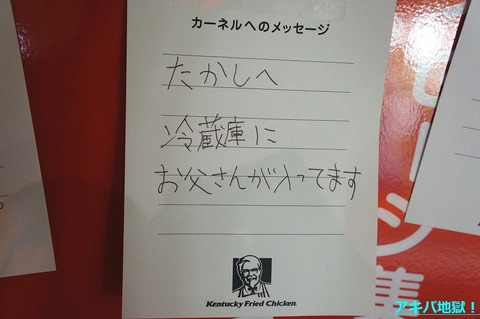 カーネルへのメッセージ
たかしへ
冷蔵庫に
お父さんが入ってます
Kentucky Fried Chicken
集
アキバ地獄!